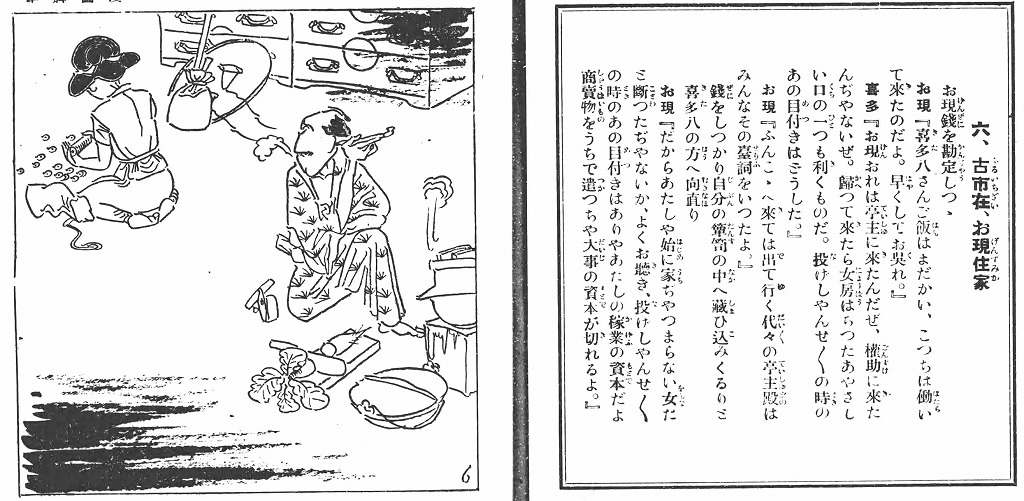 六、古市在、お現住家
お現錢を勘定しつゝ
お現『喜多八さんご飯はまだかい、こつちは働い
て來たのだよ。早くしてお呉れ。』
喜多『お現おれは亭主に來たんだぜ、權助に來た
んぢやないぜ。歸つて來たら女房はちつたあやさし
い口の一つも利くものだ。投げしやんせ〱の時の
あの目付きはどうした。』
お現『ふんこゝへ來ては出て行く代々の亭主殿は
みんなその臺詞をいつたよ。』
錢をしつかり自分の簞笥の中へ藏ひ込みくるりと
喜多八の方へ向直り
お現『だからあたしや始に家ぢやつまらない女だ
と斷つたぢやないか、よくお聽き、投げしやんせ〱
の時のあの目付きはありやあたしの稼業の資本だよ
商賣物をうちで遣つちや大事の資本が切れるよ。』
6